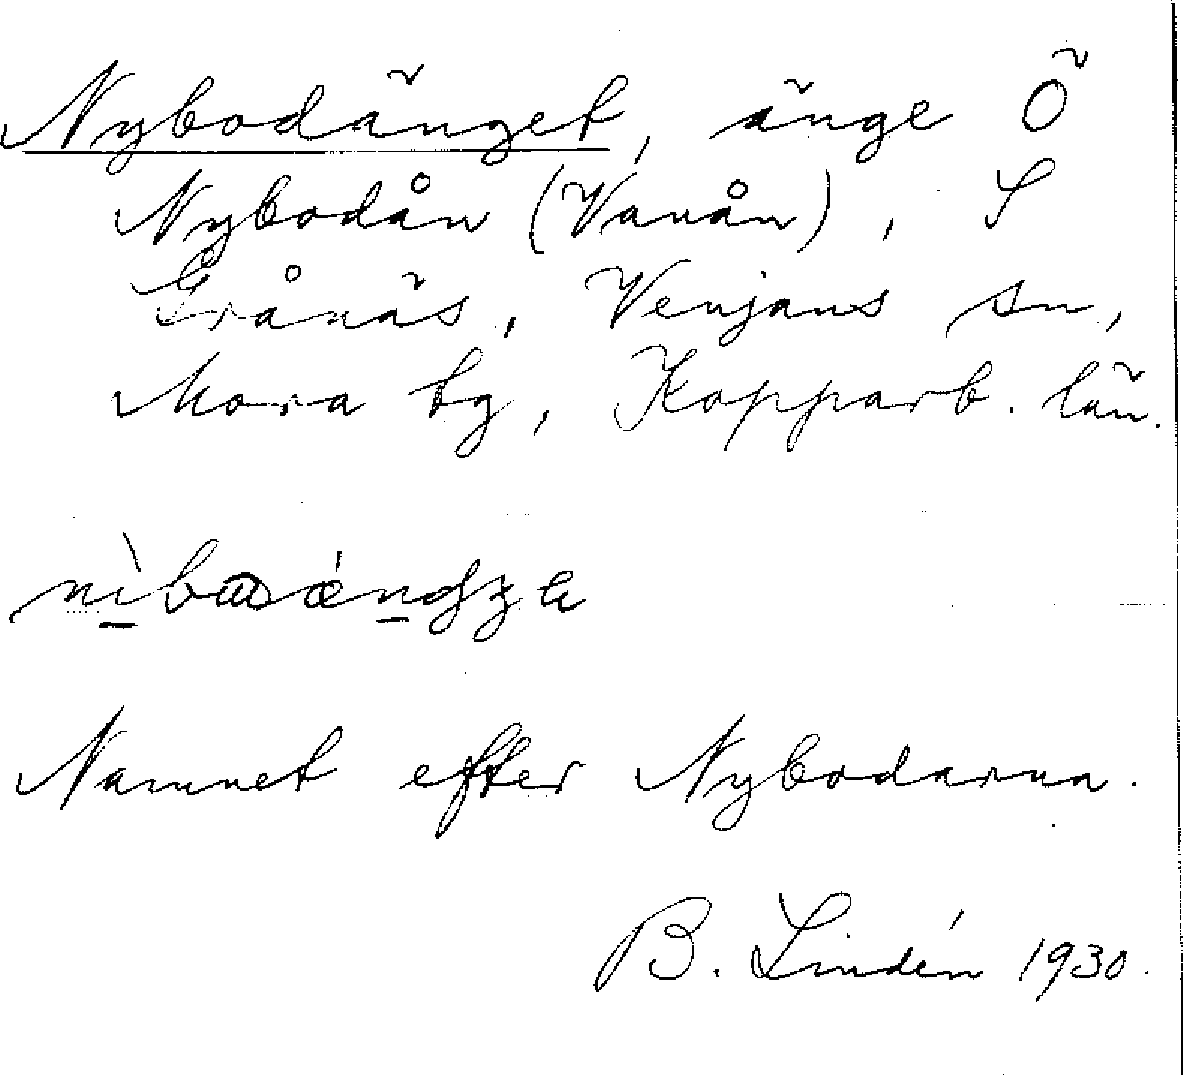 Nybodänget, änge Ö
Nybodån (Vanån), S
Grånäs, Venjans sn,
Mora tg, Kopparb. län.
Namnet efter Nybodarna.
B. Lindén 1930.